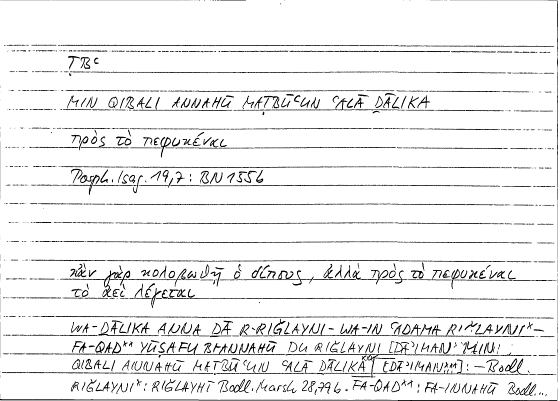 ṬBʿ
MIN QIBALI ANNAHŪ MAṬBŪʿUN ʿALĀ ḎĀLIKA
πρὸς τὸ πεφυκέναι
Porph. Isag. 19,7: BN 155b
κἂν γὰρ κολοβωθῇ ὁ δίπους, ἀλλὰ πρὸς τὸ πεφυκέναι
τὸ ἀεὶ λέγεται
WA-ḎĀLIKA ANNA ḎĀ R-RIǦLAYNI-WA-IN ʿADAMA RIǦLAYNIˣ-
FA-QADˣˣ YŪṢAFU BI-ANNAHŪ ḎŪ RIǦLAYNI [DĀʾIMAN] MIN
QIBALI ANNAHŪ MAṬBŪʿUN ʿALĀ ḎĀLIKA [DĀʾIMAN]: - Bodl.
RIǦLAYNIˣ: RIǦLAYHI Bodl. Marsh 28,79b. FA-QADˣˣ: FA-INNAHŪ Bodl...